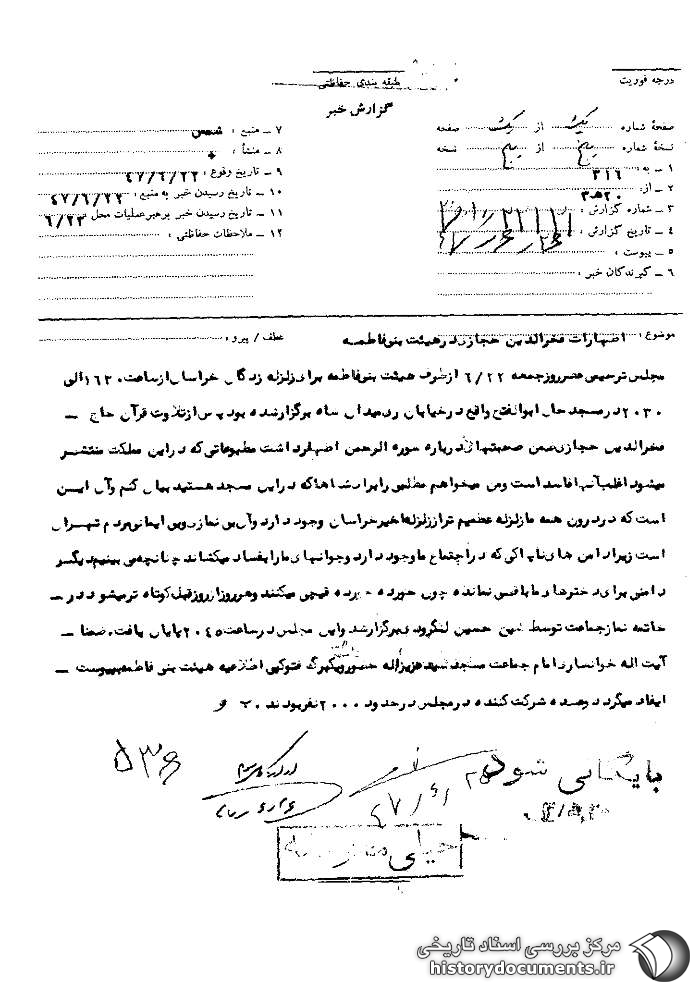 درجه فوریت
طبقه بندی حفاظتی
گزارش خبر
صفحه شماره یک از یک صفحه
نسخه شماره پنج از پنج نسخه
۱ ـ به: ۳۱۶
۲ ـ از: ۲۰ﻫ۳
۳ ـ شماره گزارش :
۴ ـ تاریخ گزارش :
۵ ـ پیوست :
۶ ـ گیرندگان خبر :
۷ ـ منبع : شمس
۸ ـ منشأ :
۹ ـ تاریخ وقوع : ۴۷/۶/۲۲
۱۰ ـ تاریخ رسیدن خبر به منبع : ۴۷/۶/۲۲
۱۱ ـ تاریخ رسیدن خبر برهبرعملیات محل ۶/۲۳
۱۲ ـ ملاحظات حفاظتی :
موضوع : اظهارات فخرالدین حجازی در هیئت بنی فاطمه
عطف / پیرو :
مجلس ترحیمی عصر روز جمعه ۶/۲۲ از طرف هیئت بنی فاطمه برای زلزله زدگان خراسان از ساعت ۱۶۳۰ الی
۲۰۳۰ در مسجد حاج ابوالفتح واقع در خیابان ری میدان شاه برگزار شده بود پس از تلاوت قرآن حاج ـ
فخرالدین حجازی ضمن صحبتهائی درباره سوره الرحمن اظهار داشت مطبوعاتی که در این مملکت منتشر
میشود اغلب آنها فاسد است ومن میخواهم مطلبی را برای شماها که در این مسجد هستید بیان کنم وآن ایــن
است که در درون همه ما زلزله عظیم تر از زلزله اخیر خراسان وجود دارد وآن بی نمازی وبی ایمانی مردم تهــران
است زیرا دامن های ناپاکی که در اجتماع ما وجود دارد وجوانهای ما را بفساد میکشاند چنانچه می بینیم دیگــر
دامنی برای دخترهای ما باقی نمانده چون خورده خورده قیچی میکنند وهر روز از روز قبل کوتاه تر میشود در ـ
خاتمه نماز جماعت توسط شیخ حسین لنگرودی برگزار شد واین مجلس در ساعت ۲۰۴۵ پایان یافت. ضمنا ـ
آیت اله خوانساری امام جماعت مسجد سید عزیزاله حضور داشتند ویکبرگ فتوکپی اطلاعیه هیئت بنی فاطمه بپیوست ـ
ایفاد میگردد وعده شرکت کننده در مجلس در حدود ۲۰۰۰ نفر بودند.
۵۳۶
بایگانی شود
۴۷/۶/۲۵
مرکز بررسی اسناد تاریخی
historydocuments.ir